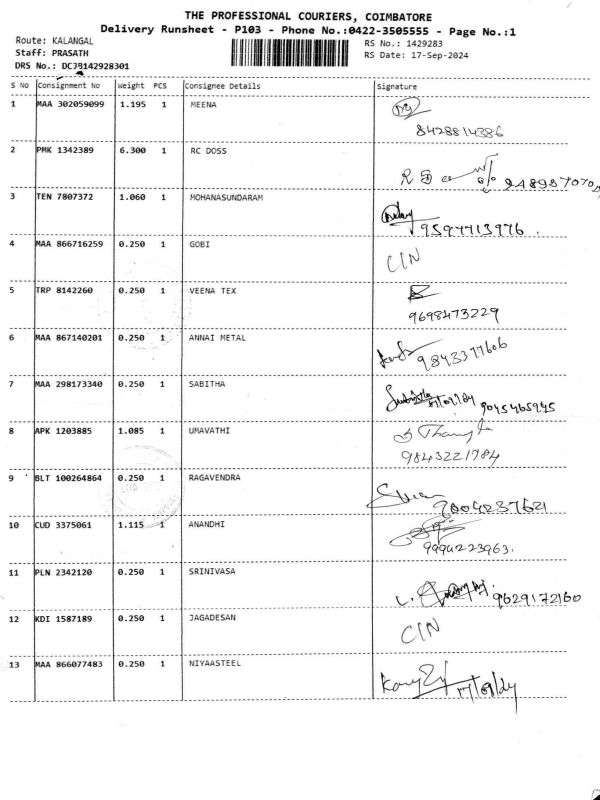 THE PROFESSIONAL COURIERS, COIMBATORE
Delivery Runsheet - P103 - Phone No.:0422-3505555 - Page No.:1
Route: KALANGAL
RS No.: 1429283
Staff: PRASATH
RS Date: 17-Sep-2024
DRS No.: DCJB142928301
S No Consignment No Weight PCS Consignee Details Signature
1 MAA 302059099 1.195 1 MEENA
8428814386
2 PMK 1342389 6.300 1 RC DOSS
3 TEN 7807372 1.060 1 MOHANASUNDARAM
9597713976.
4 MAA 866716259 0.250 1 GOBI CIN
5 TRP 8142260 0.250 1 VEENA TEX
9698473229
6 MAA 867140201 0.250 1 ANNAI METAL
9843377606
7 MAA 298173340 0.250 1 SABITHA
9045465945
8 APK 1203885 1.085 1 UMAVATHI
9843221784
9 BLT 100264864 0.250 1 RAGAVENDRA
9004237621
10 CUD 3375061 1.115 1 ANANDHI
9994223963.
11 PLN 2342120 0.250 1 SRINIVASA
9629172160
12 KDI 1587189 0.250 1 JAGADESAN CIN
13 MAA 866077483 0.250 1 NIYAASTEEL
17/09/24